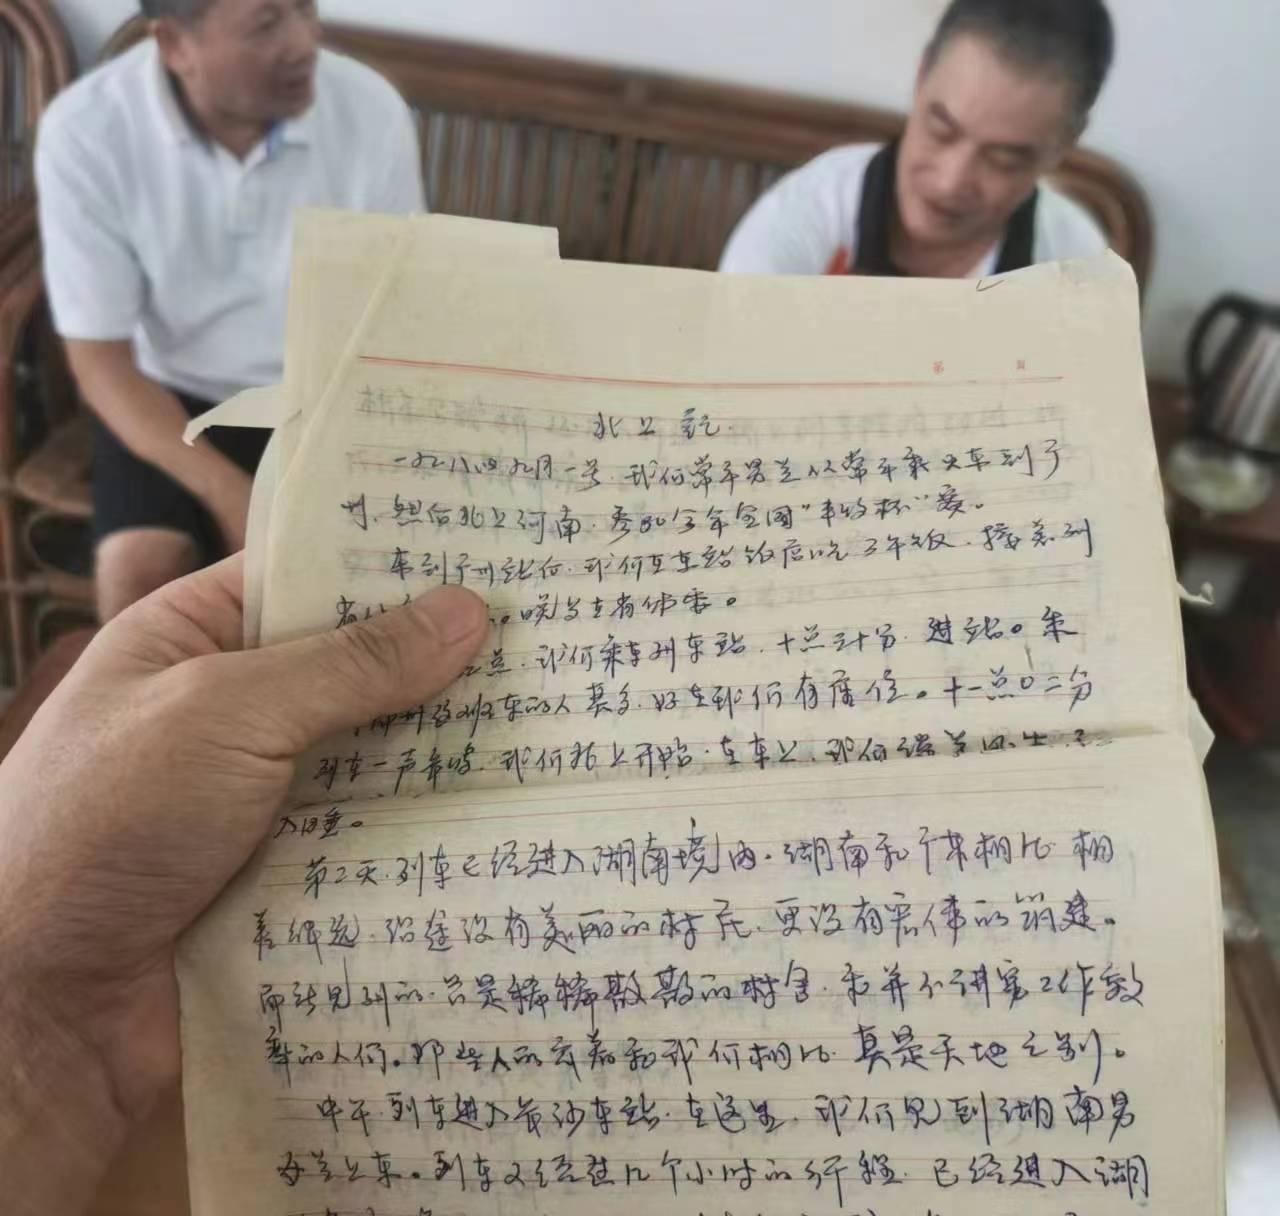 第 页
北上记.
一九八四九月一号.我们常平男兰从常平乘火车到广
州.然后北上河南.参加今年全国"丰收杯"赛。
车到广州站后.我们在车站饭店吃了午饭.接着到
省体
点.我们乘车到车站.十点三十分.进站。乘
车的人甚多.好在我们有座位。十一点0二分
列车一声长鸣.我们北上开始.在车上.我们
入睡。
第二天.列车已经进入湖南境内.湖南和广东相比.相
差很远.沿途没有美丽的村庄.更没有宏伟的筑建。
而能见到的.只是稀稀散散的村舍.和并不讲究工作效
率的人们。那些人的衣着和我们相比.真是天地之别。
中午.列车进入长沙车站.在这里.我们见到湖南男
女兰上车。列车又经过几个小时的行程.已经进入湖